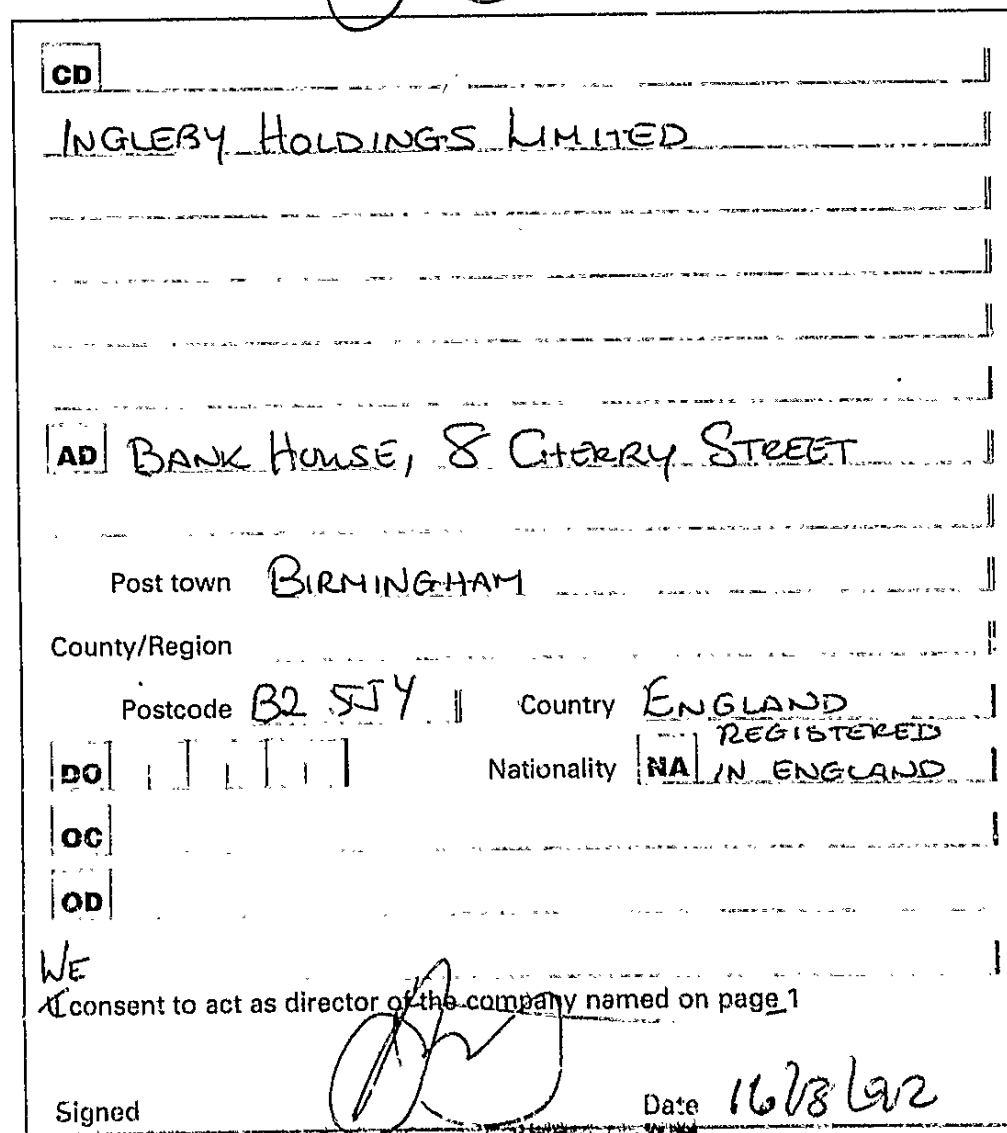 CD
INGLEBY HOLDINGS LIMITED
AD BANK HOUSE, 8 CHERRY STREET
Post town BIRMINGHAM
County/Region
Postcode B2 5JY Country ENGLAND
DO Nationality NA REGISTERED
IN ENGLAND
OC
OD
WE
I consent to act as director of the company named on page 1
Signed Date 16/8/92